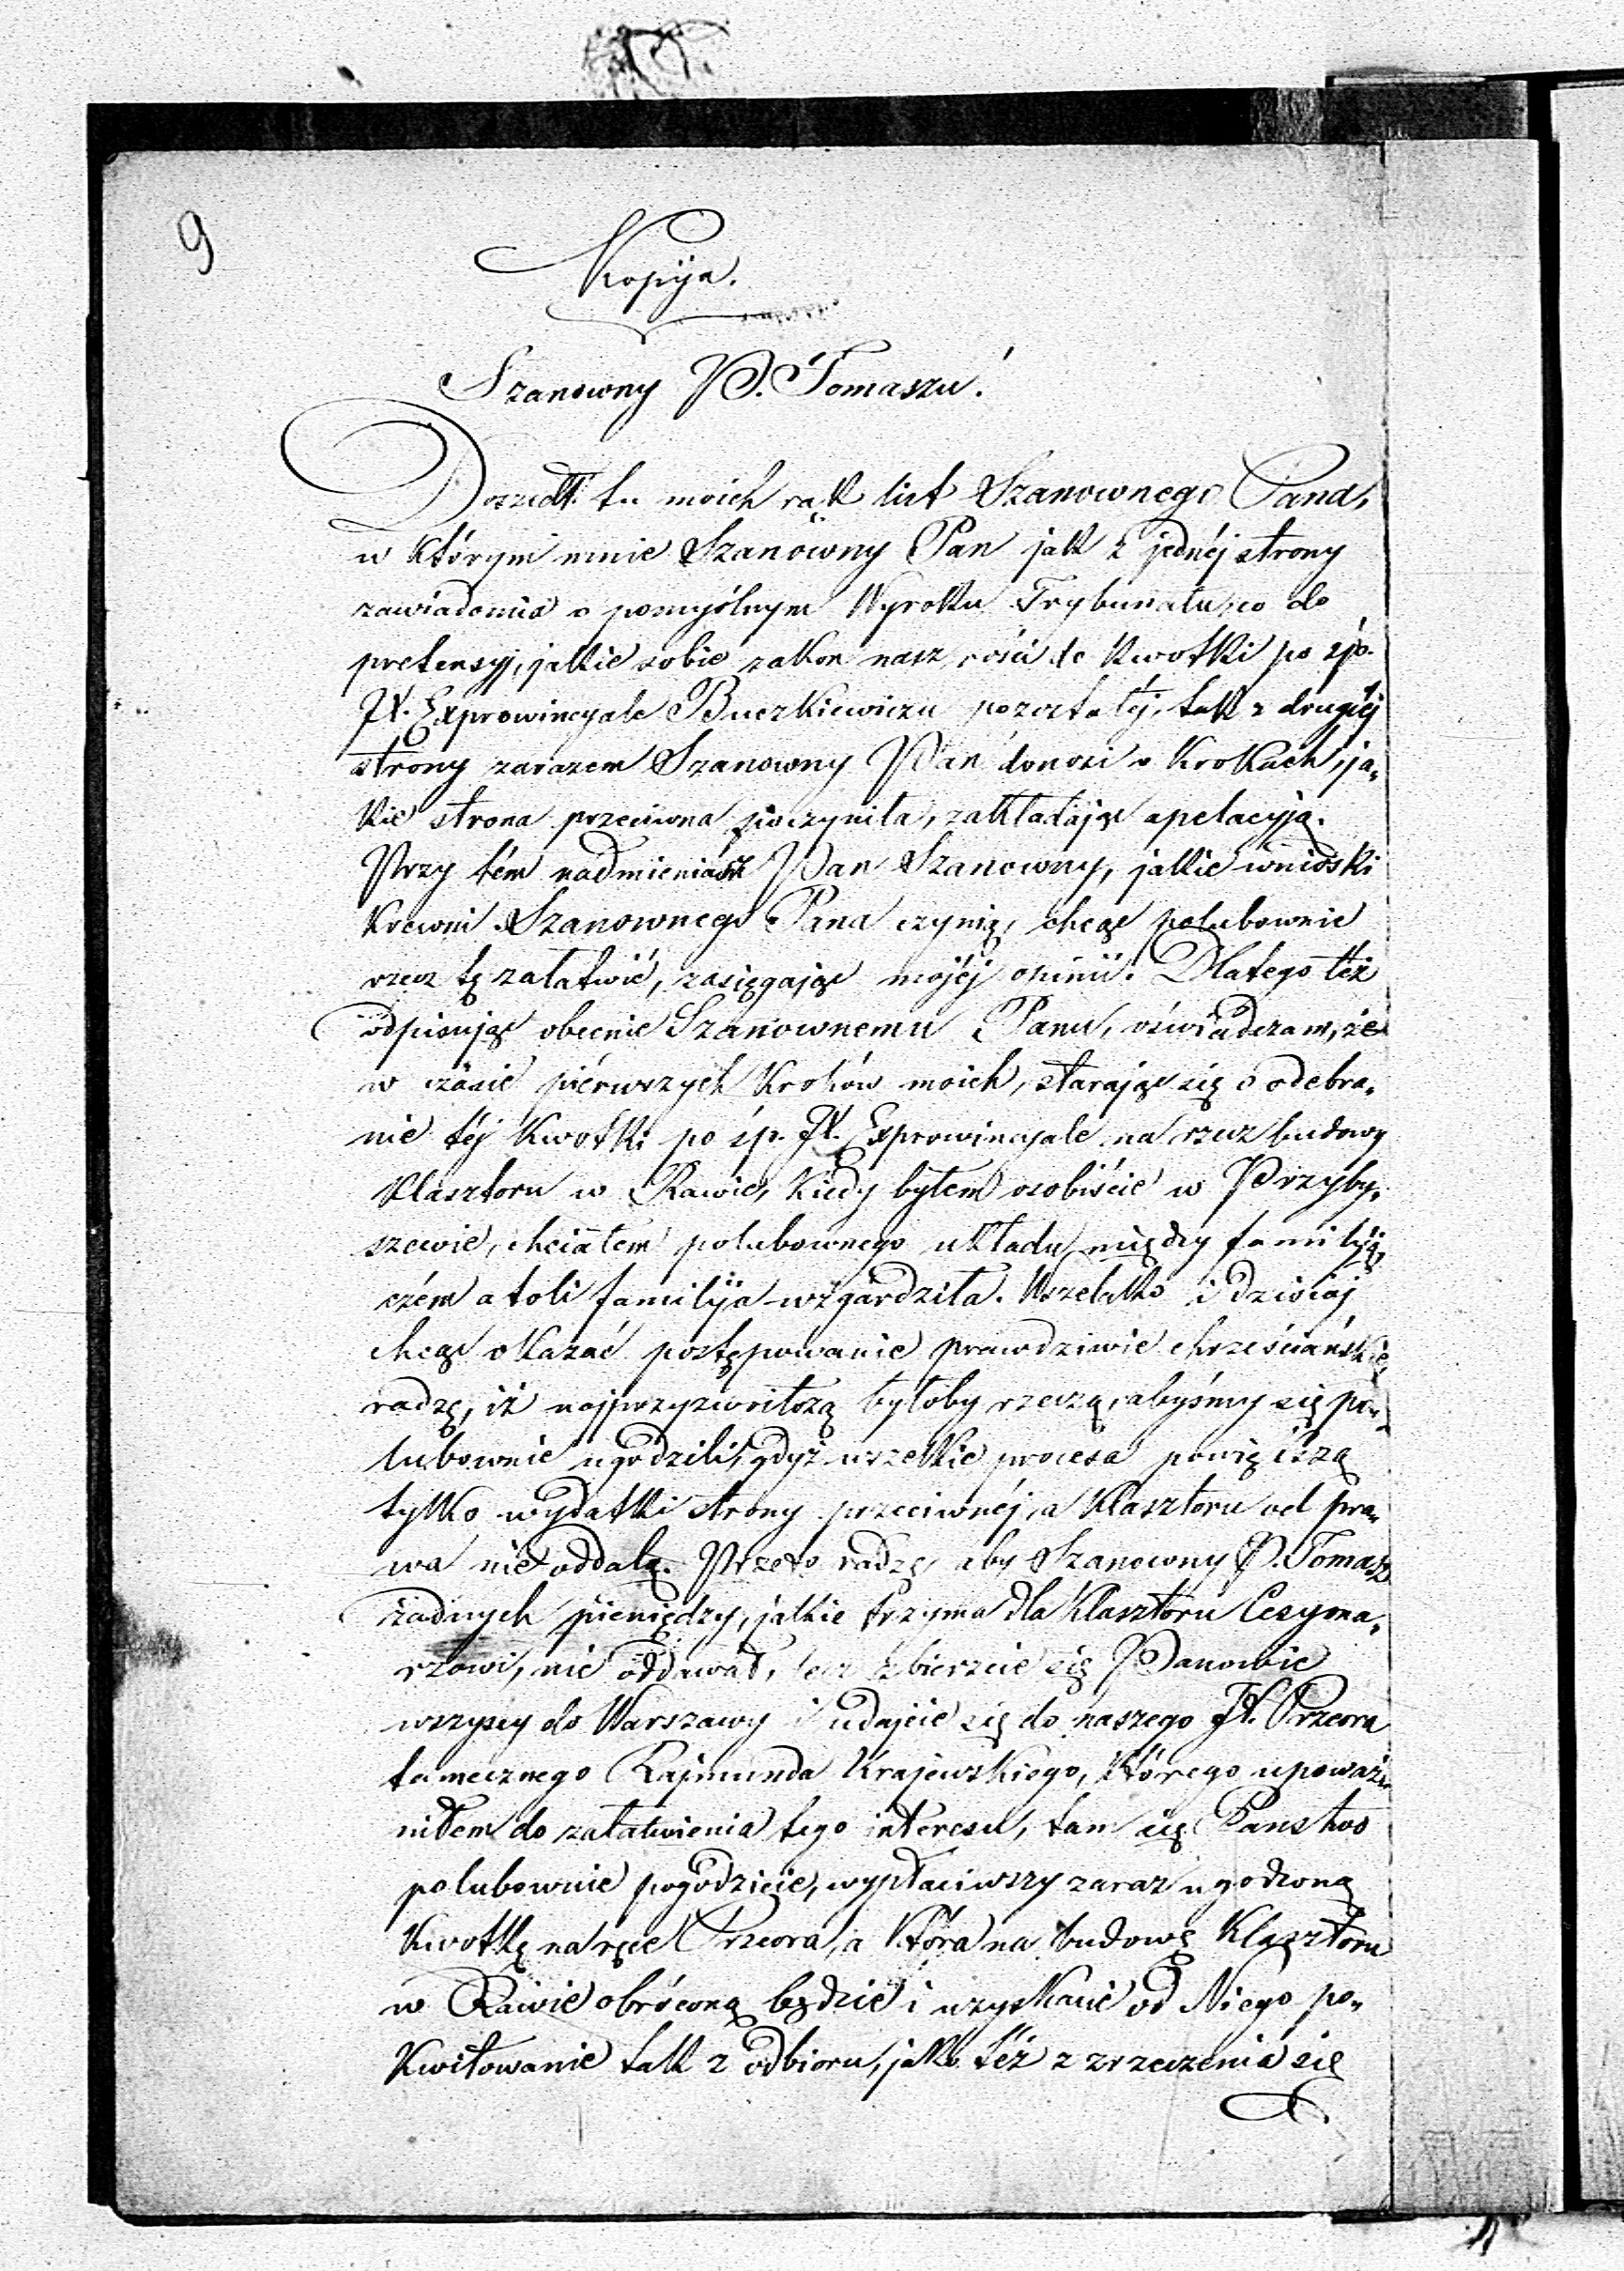 9
Kopija.
Szanowny P. Tomaszu!
Doszedł tu moich rąk list Szanownego Pana,
w którym mnie Szanowny Pan jak z jednéj strony
zawiadomia o pomyślnym Wyroku Trybunału, co do
pretensyj, jakie sobie zakon nasz rości do kwotki po śp.
JX. Exprowincyale Buczkiewiczu pozostałéj, tak z drugiéj
strony zarazem Szanowny Pan donosi o krokach, ja„
kie strona przeciwna poczyniła, zakładając apelacyją.
Przy tém nadmieniasz Pan Szanowny, jakie wnioski
krewni Szanownego Pana czynią, chcąc polubownie
rzecz tę załatwić, zasięgając mojéj opinii. Dlatego też
odpisując obecnie Szanownemu Panu, oświadczam, że
w czasie piérwszych kroków moich, starając się o odebra„
nie téj kwotki po śp. JX. Exprowincyale na rzecz budowy
klasztoru w Rawie, kiedy byłem osobiście w Przyby„
szewie, chciałem polubownego układu między familiją,
czém atoli familija wzgardziła. Wszelako i dzisiaj
chcąc okazać postępowanie prawdziwie chrześciańskie,
radzę, iż najprzyzwoitszą byłoby rzeczą, abyśmy się po„
lubownie ugodzili, gdyż wszelkie procesa powiększą
tylko wydatki strony przeciwnéj, a Klasztoru od pra„
wa nie oddalą. Przeto radzę, aby Szanowny P. Tomasz
żadnych pieniędzy, jakie trzyma dla Klasztoru
nie oddawał, lecz zbierzcie się Panowie
wszyscy do Warszawy i udajcie się do naszego JX. Przeora
tamecznego Rajmunda Krajewskiego, którego upoważ„
niłem do załatwienia tego interesu, tam się Państwo
polubownie pogodzicie, wypłaciwszy zaraz ugodzoną
kwotkę na ręce Przeora, a która na budowę Klasztoru
w Rawie obróconą będzie i uzyskacie od Niego po„
kwitowanie tak z odbioru, jako też z zrzeczenia się